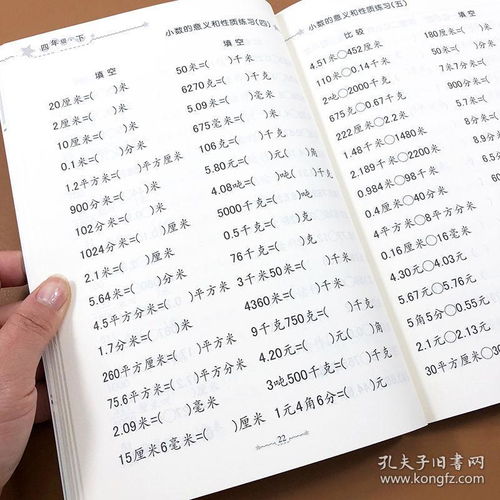 四年级 下
小数的意义和性质练习(四)
填 空
20厘米=( )米
2厘米=( )米
10厘米=( )米
0.1米=( )分米
1.2平方米=( )平方厘米
900分米=( )米
102分米=( )米
1024分米=( )厘米
2.1米=( )厘米
5.64米=( )分米
4.5平方分米=( )平方米
1.7分米=( )米
260平方厘米=( )平方米
75.6平方米=( )平方分米
2.09米=( )毫米
15厘米6毫米=( )厘米
填 空
50米=( )千米
6270克=( )千克
5.09米=( )毫米
675毫米=( )米
106克=( )千克
5.80元=( )元( )角
4.08吨=( )吨( )千克
5000千克=( )吨
0.5千克=( )克
76千克=( )克
3千米50米=( )千米
4360米=( )千米
9千克750克=( )千克
4.20元=( )元( )角
3吨500千克=( )千克
1元4角6分=( )元
22
小数的意义和性质练习(五)
比 较
4.51米○452厘米
110克○0.14千克
2吨○2000千克
675克○0.67千克
222厘米○2.2米
1.48千米○1480米
2.189千米○2200米
0.984米○98千米
0.4厘米○40分米
4平方米○8平方分米
0.16厘米○16毫米
4.30元○4.03元
5.67元○5.76元
5角5分○0.55元
2.1元○2.13元
30平方厘米○30
填空
180厘米=
50米=
9.5米=
7千米=
900分米=
5.7米=
8.9分米=
孔夫子旧书网